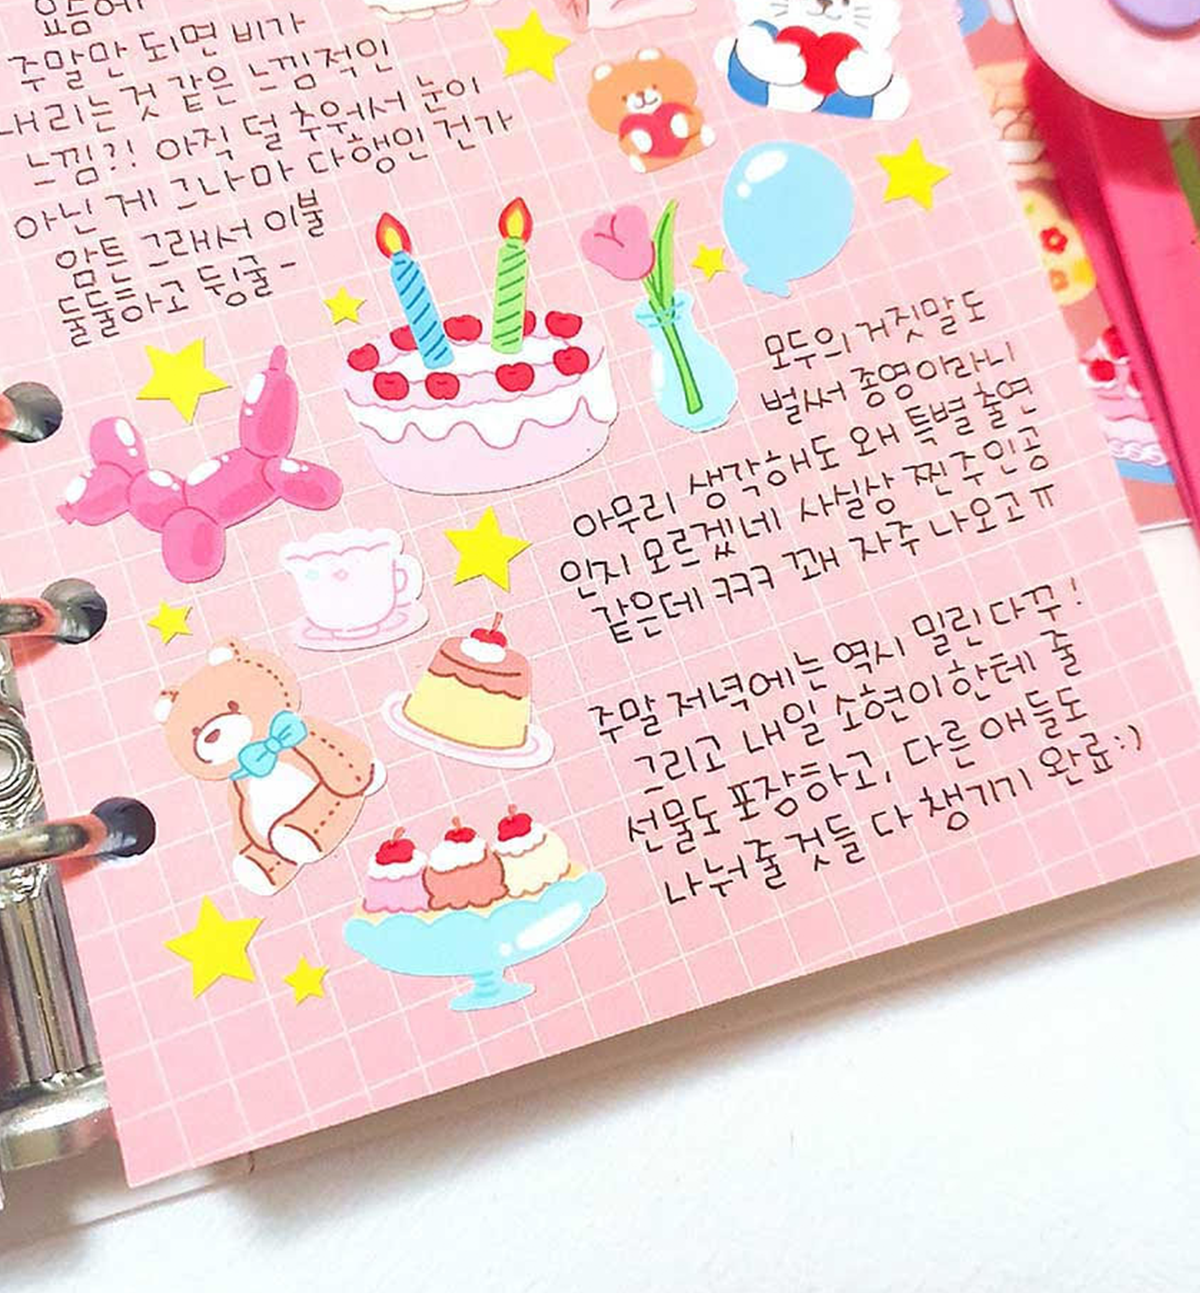 요즘에
주말만 되면 비가
내리는 것 같은 느낌적인
느낌?! 아직 덜 추워서 눈이
아닌 게 그나마 다행인 건가
암튼 그래서 이불
둘둘하고 뒹굴-
모두의 거짓말도
벌써 종영이라니
아무리 생각해도 왜 특별출연
인지 모르겠네 사실상 찐주인공
같은데 ㅋㅋㅋ 꽤 자주 나오고ㅠ
주말 저녁에는 역시 밀린 다꾸!
그리고 내일 소현이한테 줄
선물도 포장하고, 다른 애들도
나눠줄 것들 다 챙기기 완료:)